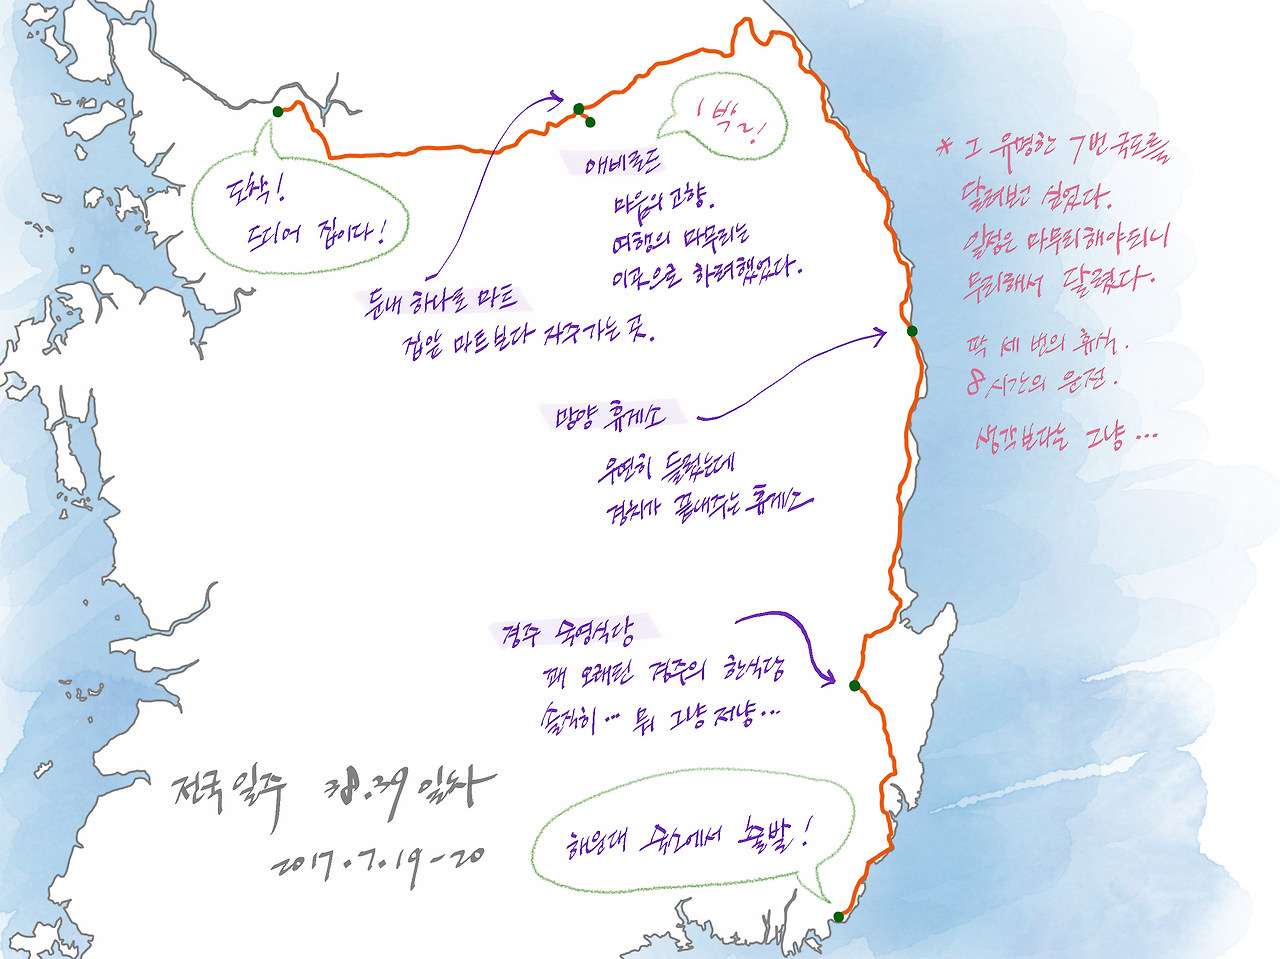 1박 2!
도착!
드디어 집이다!
애비로드
마음의 고향.
여행의 마무리는
이곳으로 하려했었다.
* 그 유명한 7번 국도를
달려보고 싶었다.
일정은 마무리해야되니
무리해서 달렸다.
딱 세 번의 휴식.
8시간의 운전.
생각보다는 그냥...
둔내 하나로 마트
집앞 마트보다 자주가는 곳.
망양 휴게소
우연히 들렀는데
경치가 끝내주는 휴게소
경주 숙영식당
꽤 오래된 경주의 한식당
솔직히... 뭐 그냥저냥...
전국일주 38.39일차
2017.7.19-20
해운대 숙소에서 출발!